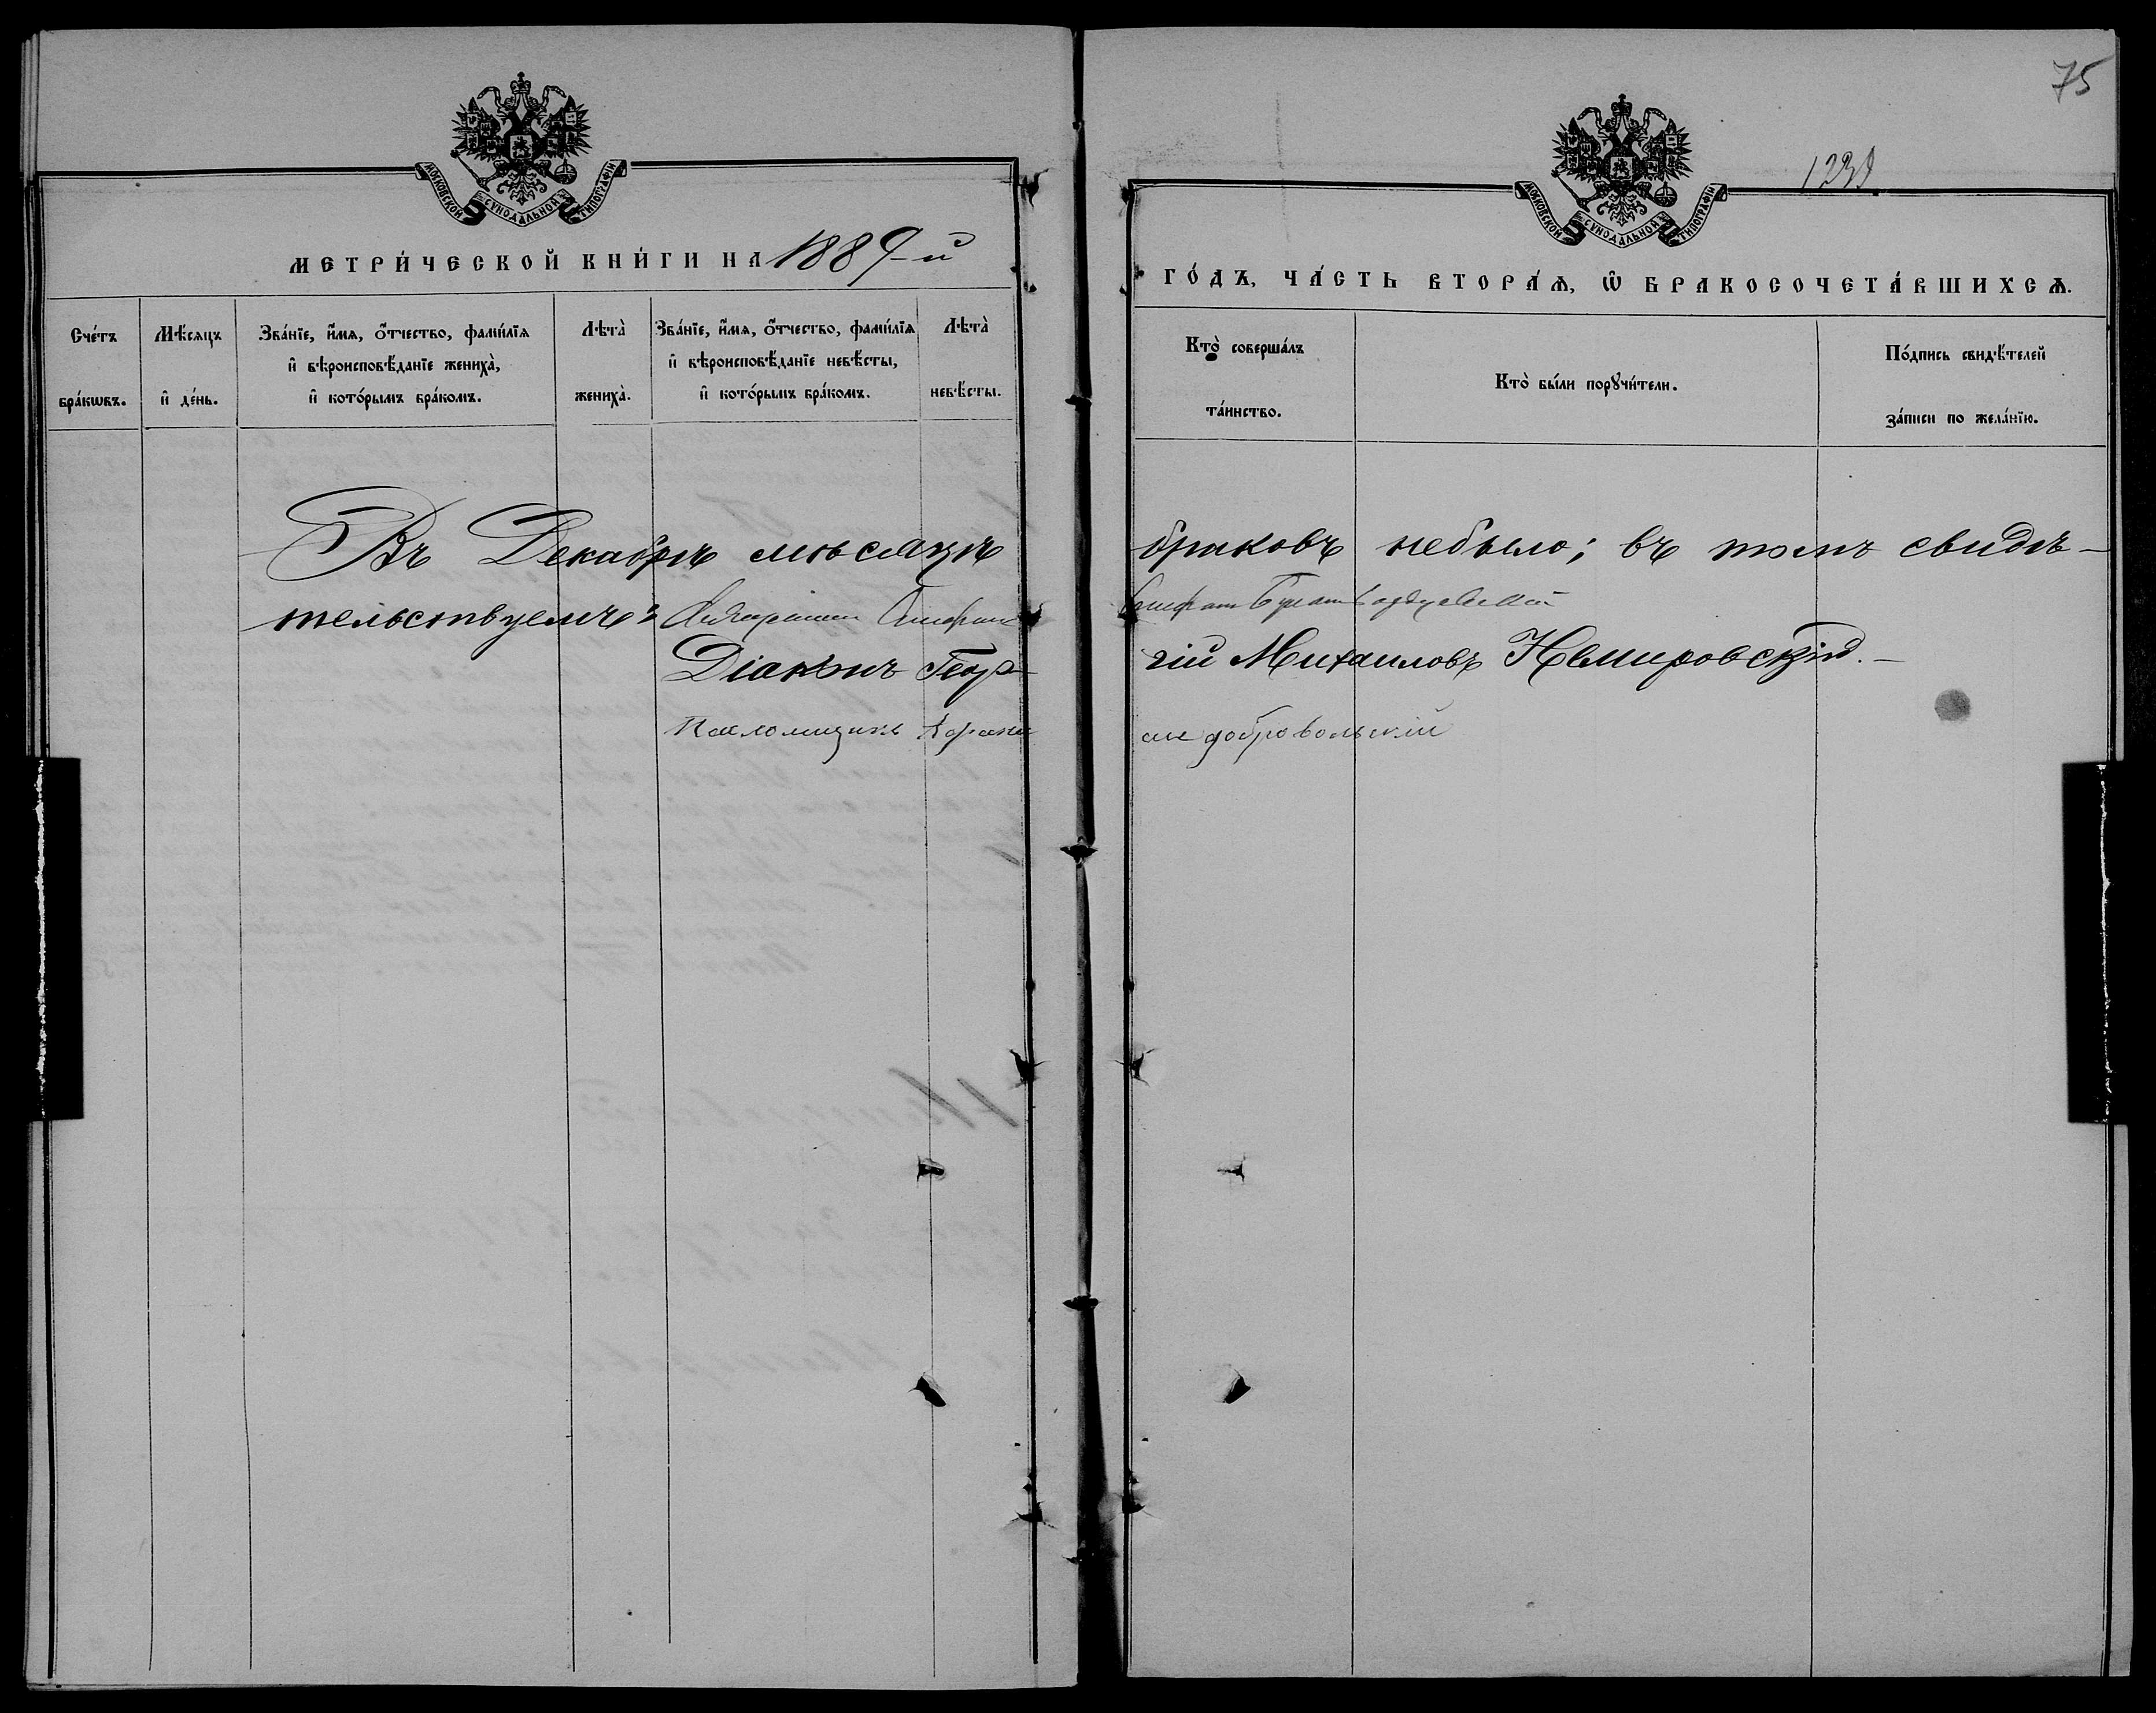 75
МОСКОВСКОЙ СѴНОДАЛЬНОЙ ТИПОГРАФІИ
МОСКОВСКОЙ СѴНОДАЛЬНОЙ ТИПОГРАФІИ
МЕТРИ́ЧЕСКОЙ КНИ́ГИ НА 1889-й
ГО́ДЪ, ЧА́СТЬ ВТОРА́Ѧ, Ѽ БРАКОСОЧЕТА́ВШИХСѦ.
Сче́тъ бра́кѡвъ.
Мѣ́сяцъ и҆ де́нь.
Зва́нїе, и҆́мѧ, о҆́тчество, фами́лїѧ и҆ вѣроисповѣ́данїе жениха̀, и҆ кото́рымъ бра́комъ.
Лѣта̀ жениха̀.
Зва́нїе, и҆́мѧ, о҆́тчество, фами́лїѧ и҆ вѣроисповѣ́данїе невѣ́сты, и҆ кото́рымъ бра́комъ.
Лѣта̀ невѣ́сты.
Кто̀ соверша́лъ та́инство.
Кто̀ бы́ли порꙋчи́тели.
По́дпись свидѣ́телей за́писи по жела́нїю.
Въ Декабрѣ мѣсяцѣ браковъ небыло; въ томъ свидѣ-
тельствуемъ:
Діаконъ Георгій Михаиловъ Немировскій.
Псаломщикъ добровольскій